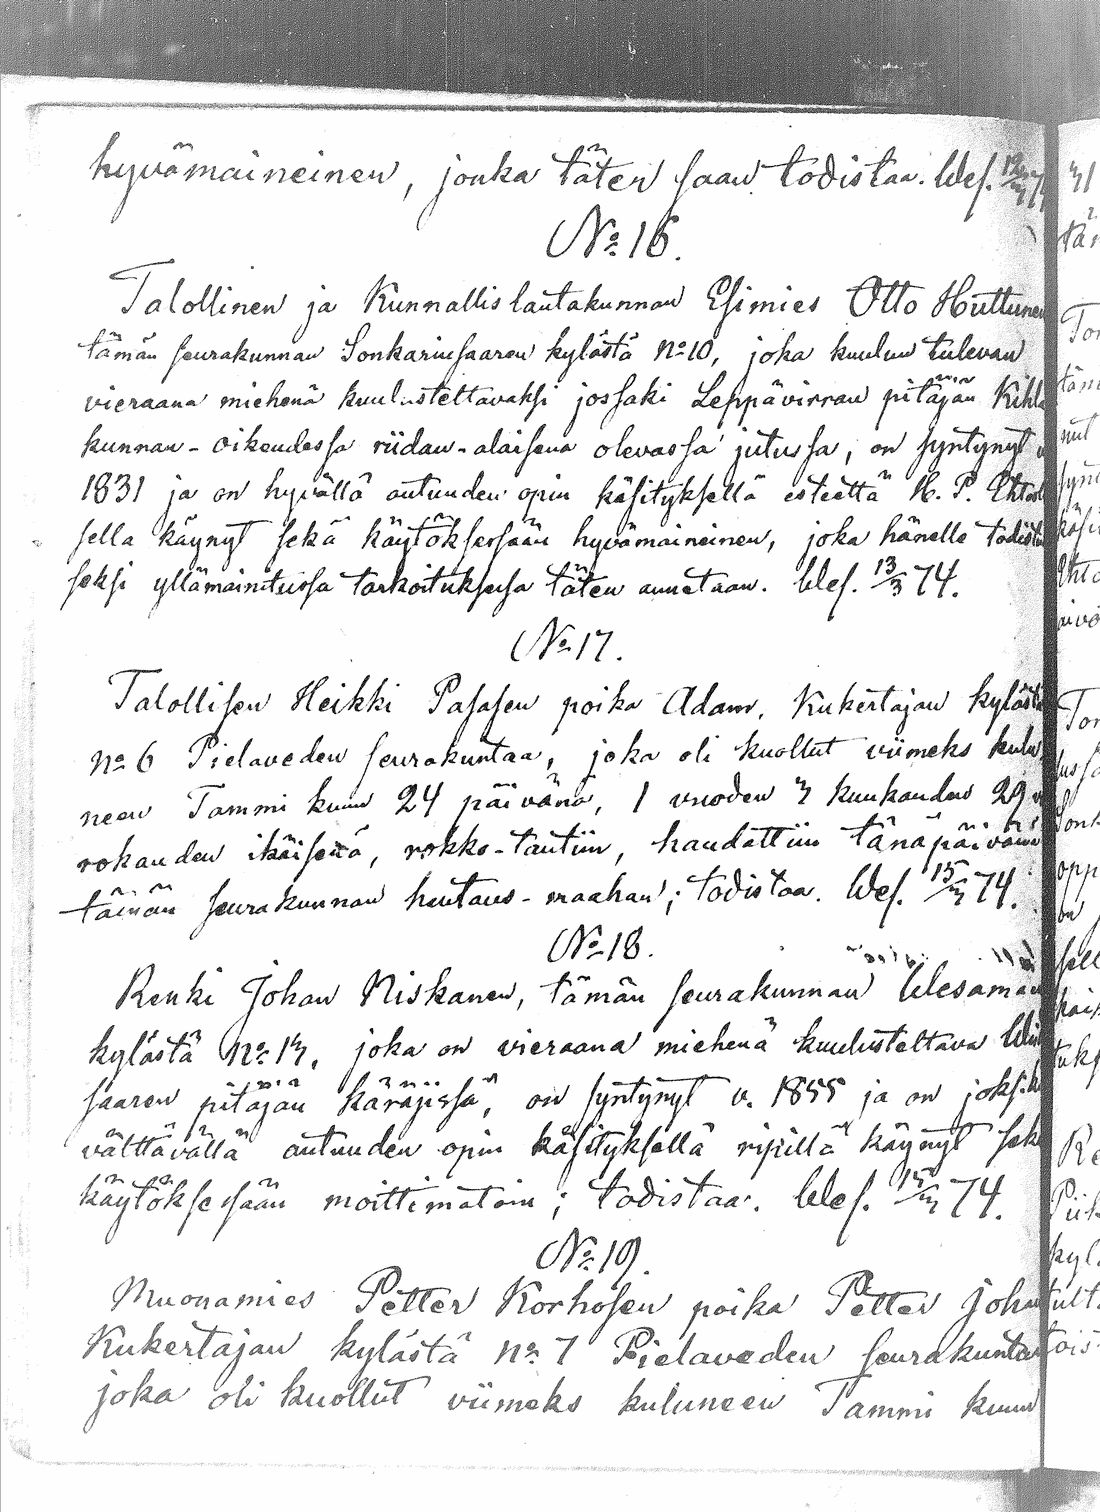 hyvämaineinen, jonka täten saan todistaa. Wes.
No 16.
Talollinen ja Kunnallislautakunnan Esimies Otto Huttunen
tämän seurakunnan Sonkarinsaaren kylästä No 10, joka kuuluu tulevan
vieraana miehenä kuulusteltavaksi jossaki Leppävirran pitäjän Kihla
kunnan-oikeudessa riidan-alaisena olevassa jutussa, on syntynyt v
1831 ja on hyvällä autuuden opin käsityksellä esteettä H. P. Ehtool
sella käynyt sekä käytöksessään hyvämaineinen, joka hänelle todistu
seksi yllämainitussa tarkoituksessa täten annetaan. Wes. 13/3 74.
No 17.
Talollisen Heikki Pasasen poika Adam, Kukertajan kylästä
No 6 Pielaveden seurakuntaa, joka oli kuollut viimeks kulu
neen Tammi kuun 24 päivänä, 1 vuoden 3 kuukauden 29 v
rokauden ikäisenä, rokko-tautiin, haudattiin tänäpäivänä
tämän seurakunnan hautaus-maahan; todistaa. Wes. 15/3 74.
No 18.
Renki Johan Niskanen, tämän seurakunnan Wesamäen
kylästä No 13, joka on vieraana miehenä kuulusteltava
saaren pitäjän käräjissä, on syntynyt v. 1855 ja on joksiki
välttävällä autuuden opin käsityksellä ripillä käynyt sekä
käytöksessään moittimatoin; todistaa. Wes. 15/3 74.
No 19.
Muonamies Petter Korhosen poika Petter Johan
Kukertajan kylästä No 7 Pielaveden seurakuntaa
joka oli kuollut viimeks kuluneen Tammi kuun